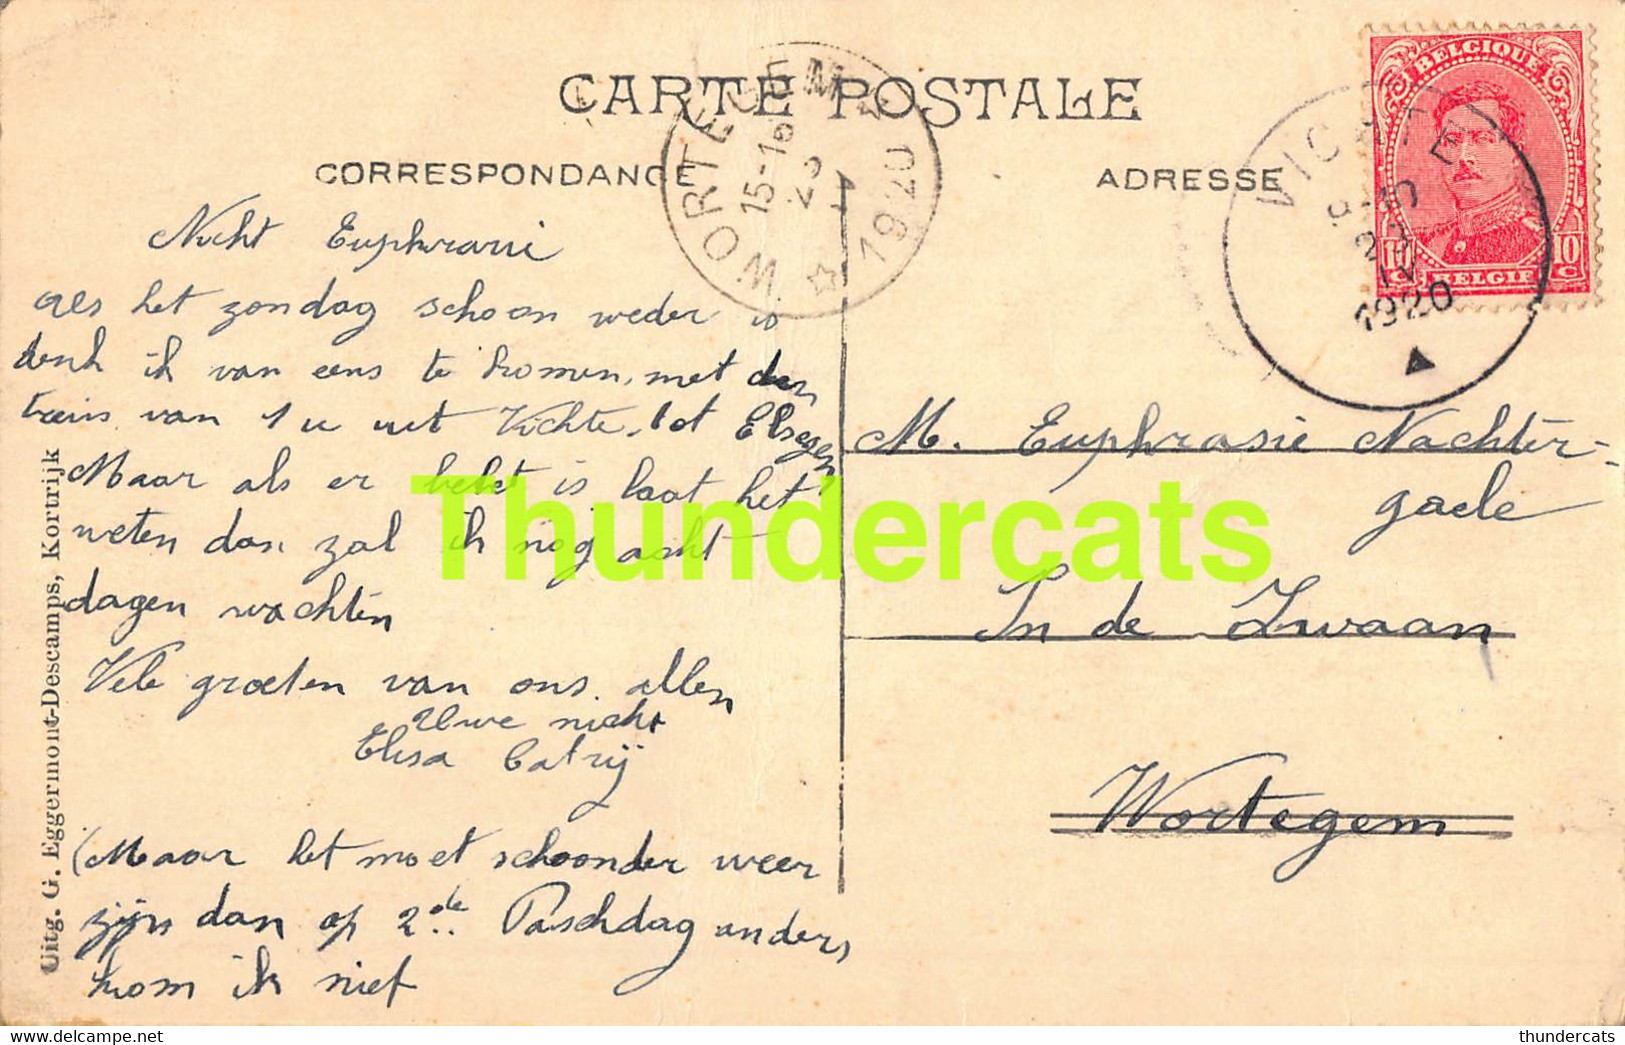 CARTE POSTALE
CORRESPONDANCE
ADRESSE
WORTEGEM
15-16
1920
VICHTE
1920
BELGIQUE
10 10
BELGIE
Nicht Euphrasie
als het zondag schoon weder is
denk ik van eens te komen, met den
trein van 1 u uit Vichte tot Elsegem
Maar als er belet is laat het
weten dan zal ik nog acht
dagen wachten
Vele groeten van ons allen
Uwe nicht
Elisa Catrij
(Maar het moet schoonder weer
zijn dan op 2de Paschdag anders
kom ik niet
M. Euphrasie Nachter-
gaele
In de Zwaan
Wortegem
Uitg. G. Eggermont-Descamps, Kortrijk
Thundercats
www.delcampe.net
thundercats